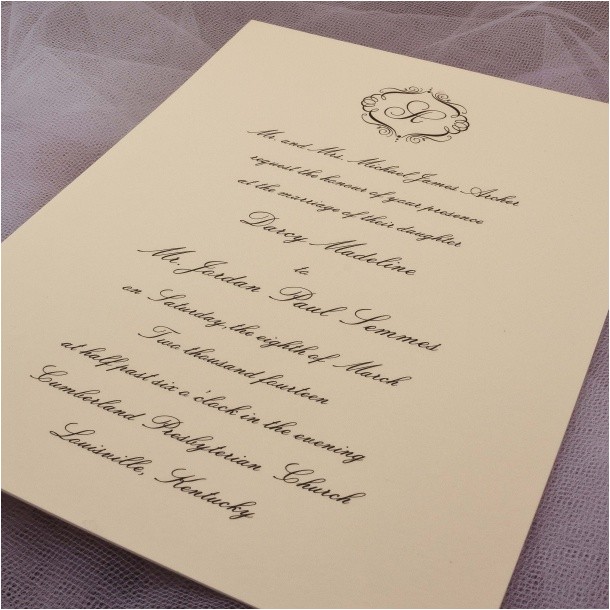 Mr. and Mrs. Michael James Archer
request the honour of your presence
at the marriage of their daughter
Darcy Madeline
to
Mr. Jordan Paul Semmes
on Saturday, the eighth of March
Two thousand fourteen
at half past six o'clock in the evening
Cumberland Presbyterian Church
Louisville, Kentucky